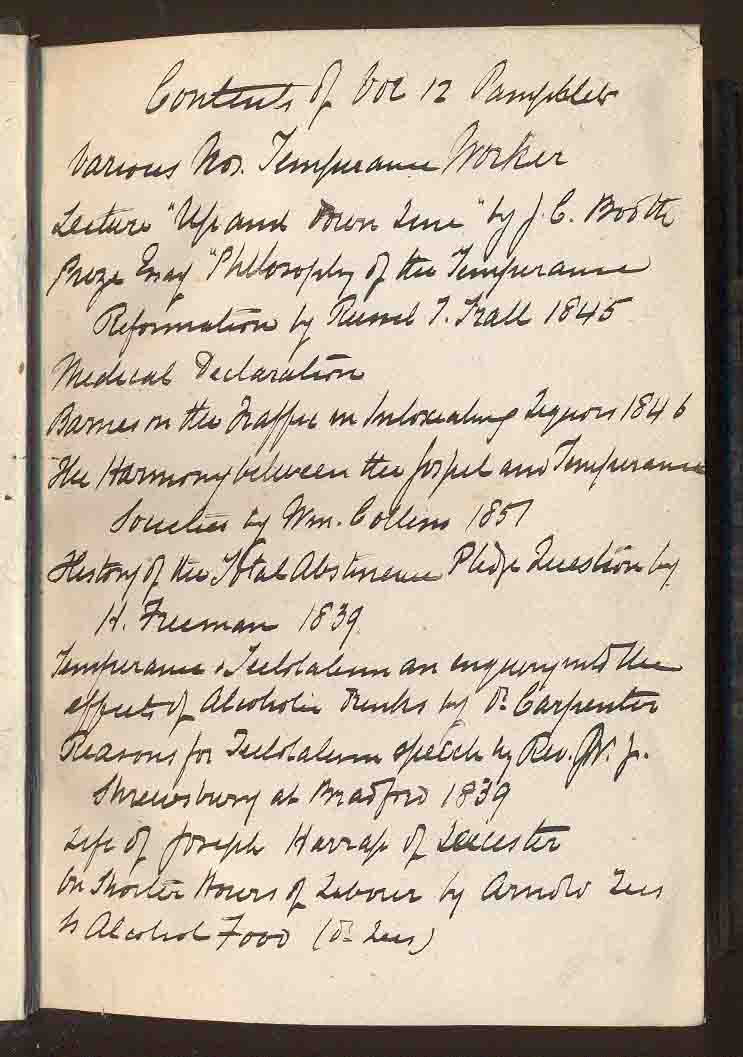 Contents of Vol 12 Pamphlets
Various Nos. Temperance Worker
Lecture "Up and Down Line" by J. C. Booth
Prize Essay "Philosophy of the Temperance
Reformation by Russel T. Trall 1845
Medical Declaration
Barnes on the Traffic in Intoxicating Liquors 1846
The Harmony between the Gospel and Temperance
Societies by Wm. Collins 1851
History of the Total Abstinence Pledge Question by
H. Freeman 1839
Temperance & Teetotalism an enquiry into the
effects of Alcoholic Drinks by Dr Carpenter
Reasons for Teetotalism speech by Rev. W. J.
Shrewsbury at Bradford 1839
Life of Joseph Harrap of Leicester
On Shorter Hours of Labour by Arnold Lees
Is Alcohol Food (Dr Lees)